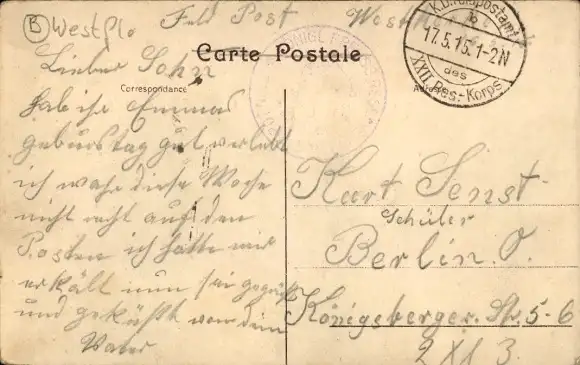 B Westfl.
Feld Post
K.D. Feldpostamt
b
17.5.15. 1-2N
des
XXII. Res.-Korps.
Carte Postale
Correspondance
Lieber Sohn
Hab ihr Emmas
Geburstag gut verlebt
ich wahr diese Woche
nicht recht auf den
Posten ich hatte mir
erkält nun sei gegrüßt
und geküßt von dein
Vater
Kurt Senst
Schüler
Berlin. O.
Königsberger. Str. 5-6
2 XII 3.